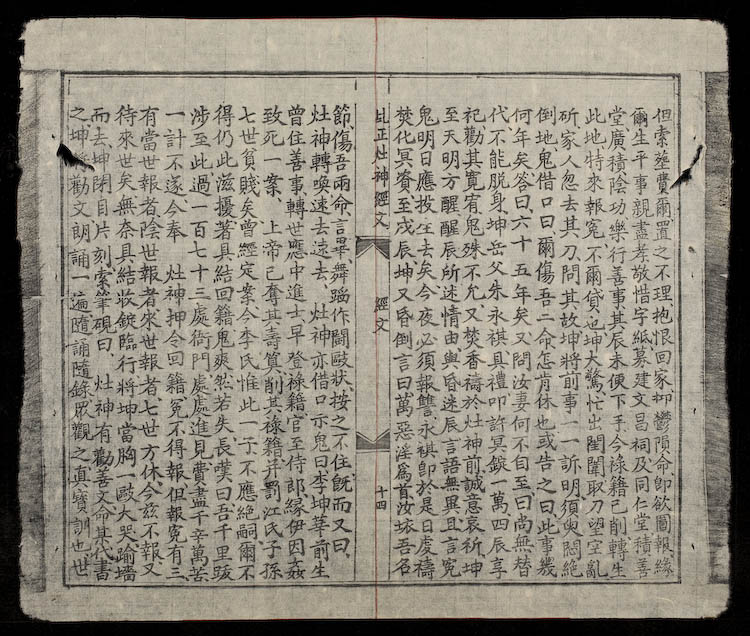 但索葬費爾置之不理抱恨回家抑鬱隕命卽欲圖報緣
爾生平事親盡孝敬惜字紙募建文昌祠及同仁堂積善
堂廣積陰功樂行善事其辰未便下手今祿籍已削轉生
此地特來報寃不爾貸也坤大驚忙出閨闈取刀望空亂
斫家人忽去其刀問其故坤將前事一一訴明須臾悶絕
倒地鬼借口曰爾傷吾二命怎肯休也或告之曰此事幾
何年矣答曰六十五年矣又問汝妻何不自至曰尚無替
代不能脫身坤岳父朱永祺具禮叩許冥鏹一萬四辰享
祀勸其寬宥鬼殊不允又焚香禱於灶神前誠意哀祈坤
至天明方醒醒辰所述情由與昏迷辰言語無異且言寃
鬼明日應投生去矣今夜必須報讐永祺卽於是日虔禱
焚化冥資至戌辰坤又昏倒言曰萬惡淫爲首汝壞吾名
乩正灶神經文 經文 十四
節傷吾兩命言畢舞蹈作鬭毆狀按之不住旣而又曰
灶神轉喚速去速去 灶神亦借口示鬼曰李坤華前生
曾住善事轉世應中進士早登祿籍官至侍郎緣伊因姦
致死一案 上帝已奪其壽算削其祿籍并罰江氏子孫
七世貧賤矣曾經定案今李氏惟此一子不應絕嗣爾不
得仍此滋擾著具結回籍鬼爽然若失長嘆曰吾千里跋
涉至此過一百七十三處衙門處處進見費盡千辛萬苦
一計不遂今奉 灶神押令回籍寃不得報但報寃有三
有當世報者陰世報者來世報者七世方休今茲不報又
待來世矣無奈具結收錠臨行將坤當胸一毆大哭踰墻
而去坤閉目片刻索筆硯曰 灶神有勸善文命其代書
之坤將勸文朗誦一遍隨誦隨錄眾觀之眞寶訓也世